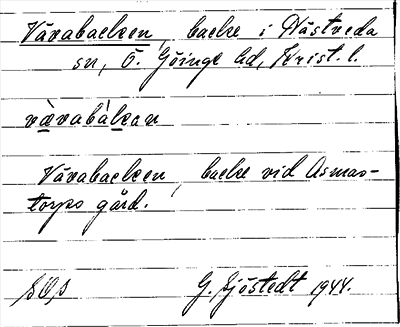 Vävabacken, backe i Hästveda
sn, Ö. Göinge hd, Krist. l.
vàvabàkan
Vävabacken, backe vid Asmas-
torps gård.
G. Sjöstedt 1944.